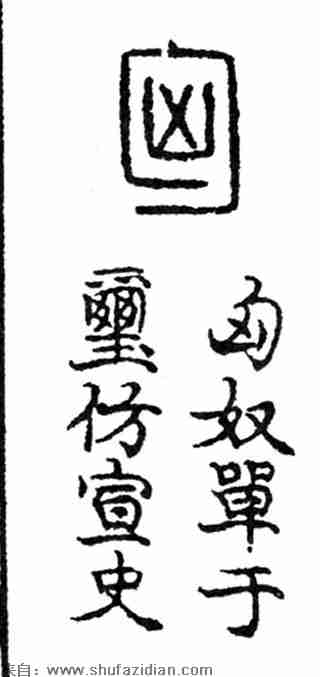 匈
匈奴單于
璽仿宣史
来自：www.shufazidian.com